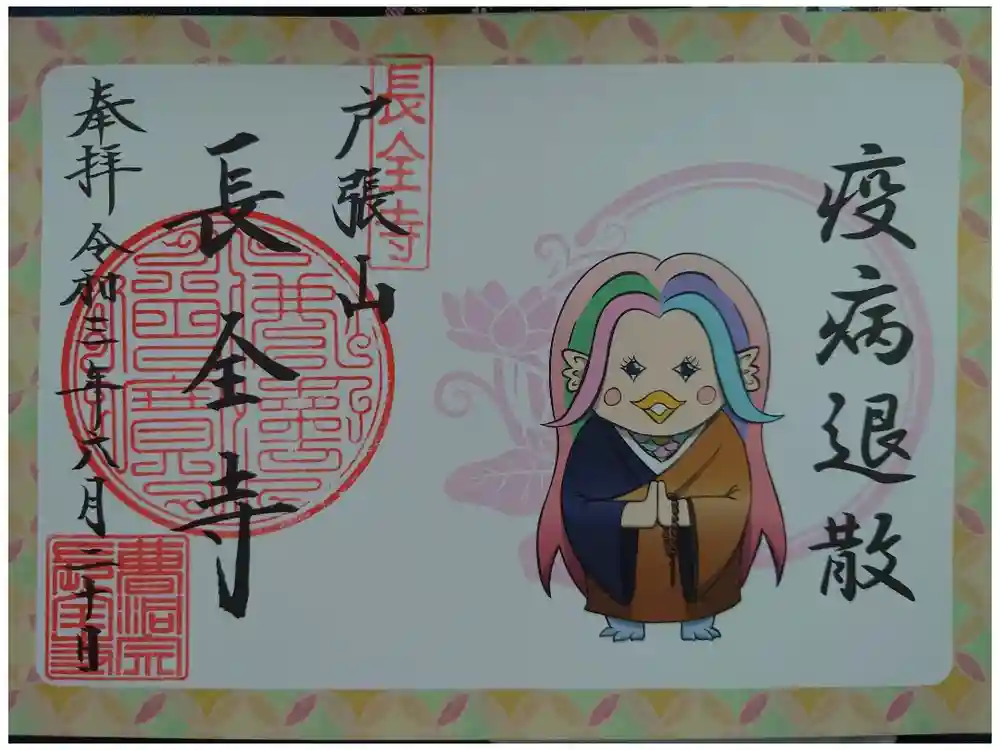 疫病退散
長全寺
戸張山
長全寺
奉拝 令和三年六月二十日
曹洞宗
長全寺